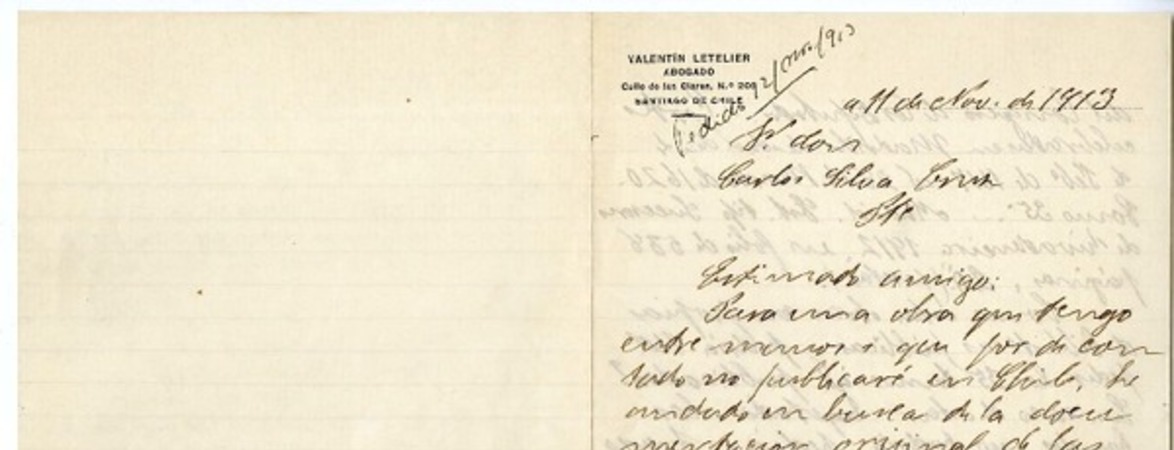 VALENTÍN LETELIER
ABOGADO
Calle de las Claras, N.º 208
SANTIAGO DE CHILE
Pedido 12/nov./913
a 11 de Nov. de 1913
Señor
Carlos Silva Cruz
Pte
Estimado amigo:
Para una obra que tengo
entre manos i que por de con
tado no publicaré en Chile, he
andado en busca de la docu
mentacion orijinal de las